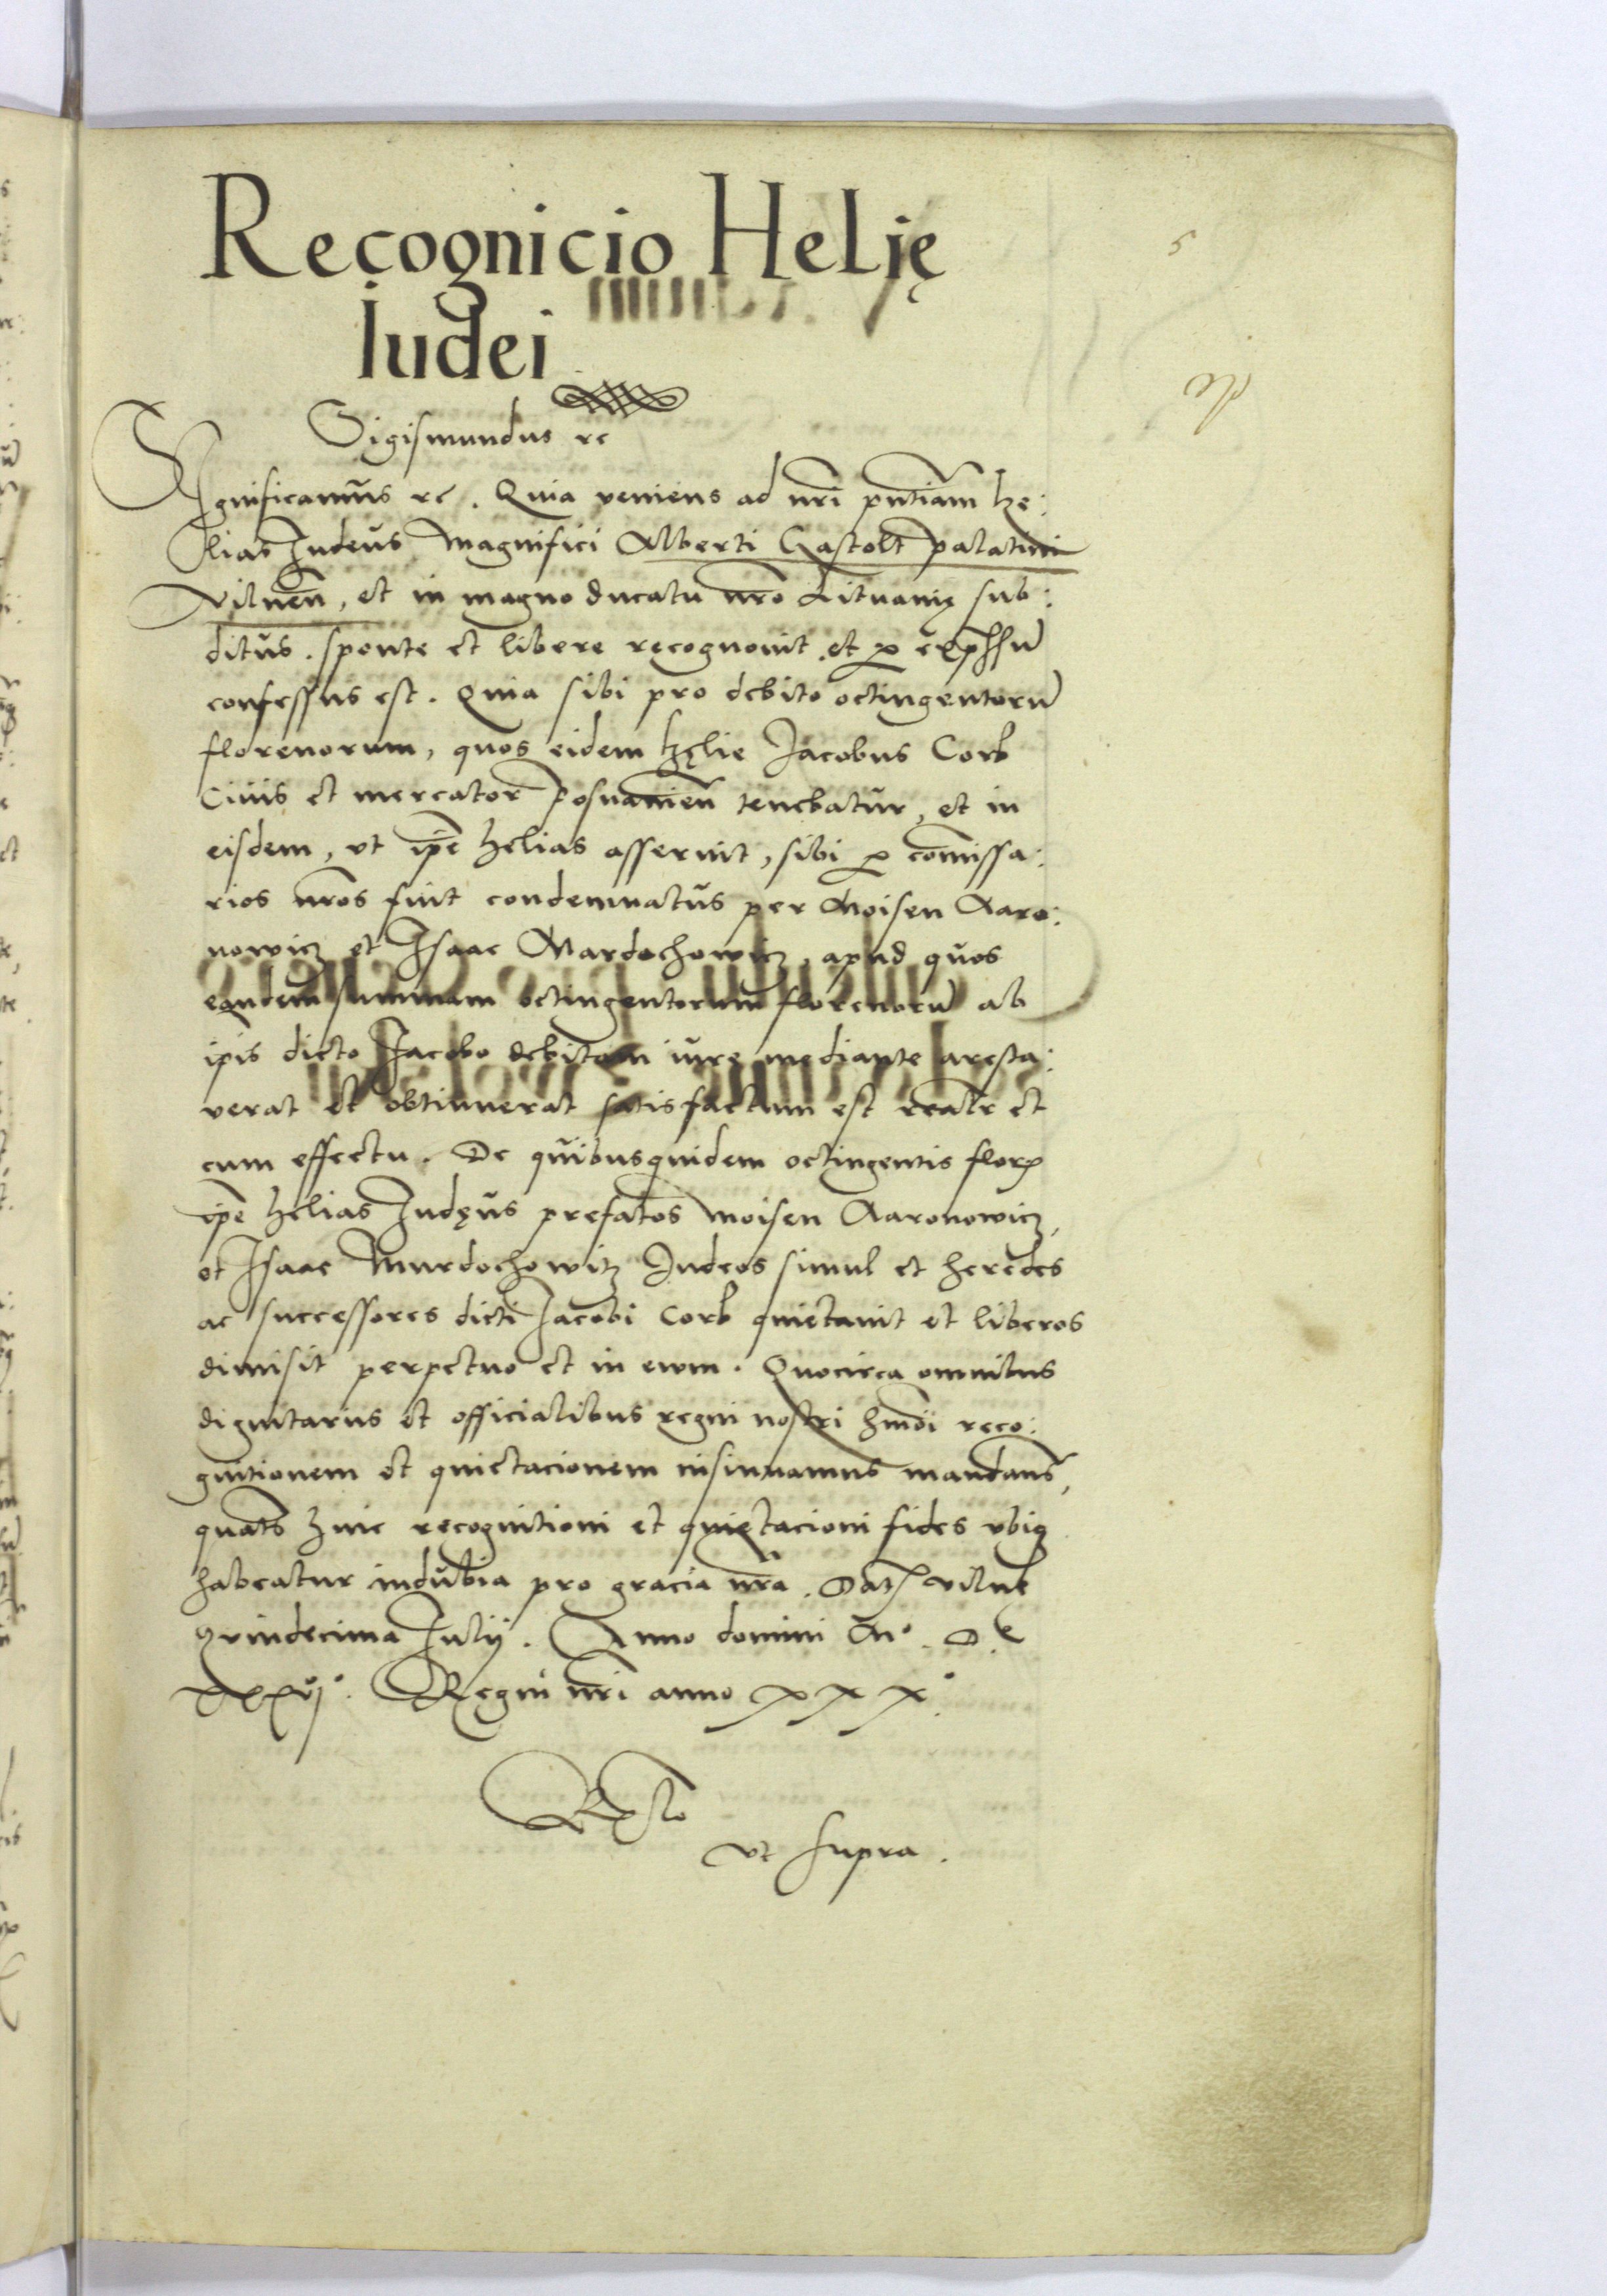 Recognicio Helię
Iudei
Sigismundus rc
Significamus rc. Quia veniens ad nr̄i pn̄tiam he:
lias Iudeus Magnifici Alberti Gastolt palatini
vilnen̄, et in magno ducatu nr̄o Lituanię sub:
ditus. sponte et libere recognouit et p expssū
confessus est. Quia sibi pro debito octingentorū
florenorum, quos eidem hęlie Jacobus Corb
Ciuis et mercator posnanien̄ tenebatur, et in
eisdem, vt ip̄e helias asseruit, sibi p com̄issa:
rios nr̄os fuit condemnatus per Moisen Aaro:
nowicz et Isaac Mardochowicz, apud quos
eandem summam octingentorum florenorū ab
ipis dicto Jacobo debitam iure mediante aresta:
verat et obtinuerat satisfactum est realr̄ et
cum effectu. De quibusquidem octingentis flor
ip̄e helias Iudęus prefatos Moisen Aaronowicz,
et Isaac Murdochowitz Iudeos simul et heredes
ac successores dicti Jacobi Corb quietauit et liberos
dimisit perpetuo et in ewm. Quocirca omnibus
dignitariis et officialibus regni nostri hm̄oi reco:
gnitionem et quietacionem insinuamus mandan̄s,
quat̄s huic recognitioni et quietacioni fides vbiq
habeatur indubia pro gracia nr̄a. Dat vilnę
quindecima Iulij. Anno domini Mo. D.
xxxvjo. Regni nr̄i anno xxxo.
Rlo
vt supra.